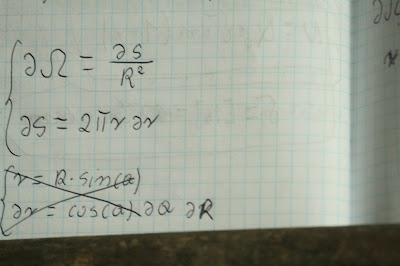 ∂Ω = ∂S/R²
∂S = 2πr∂r
r = R·sin(α)
∂r = cos(α)∂α ∂R